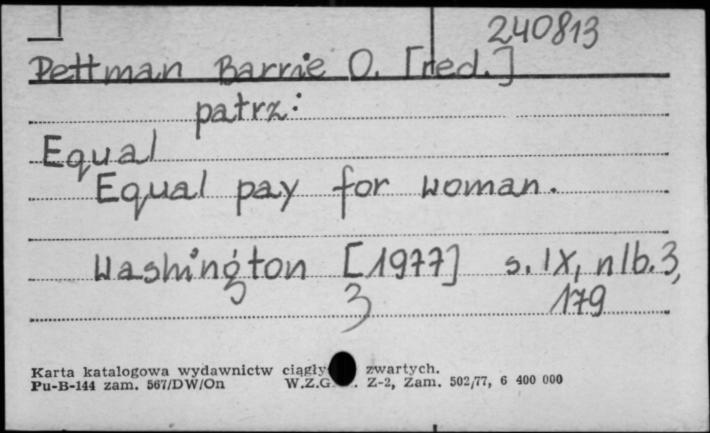 240813
Pettman Barrie O. [red.]
patrz:
Equal
Equal pay for woman.
Washington [1977] s. IX, nlb. 3,
3 179
Karta katalogowa wydawnictw zwartych.
Pu-B-144 zam. 567/DW/On W.Z.G. Z-2, Zam. 502/77, 6 400 000